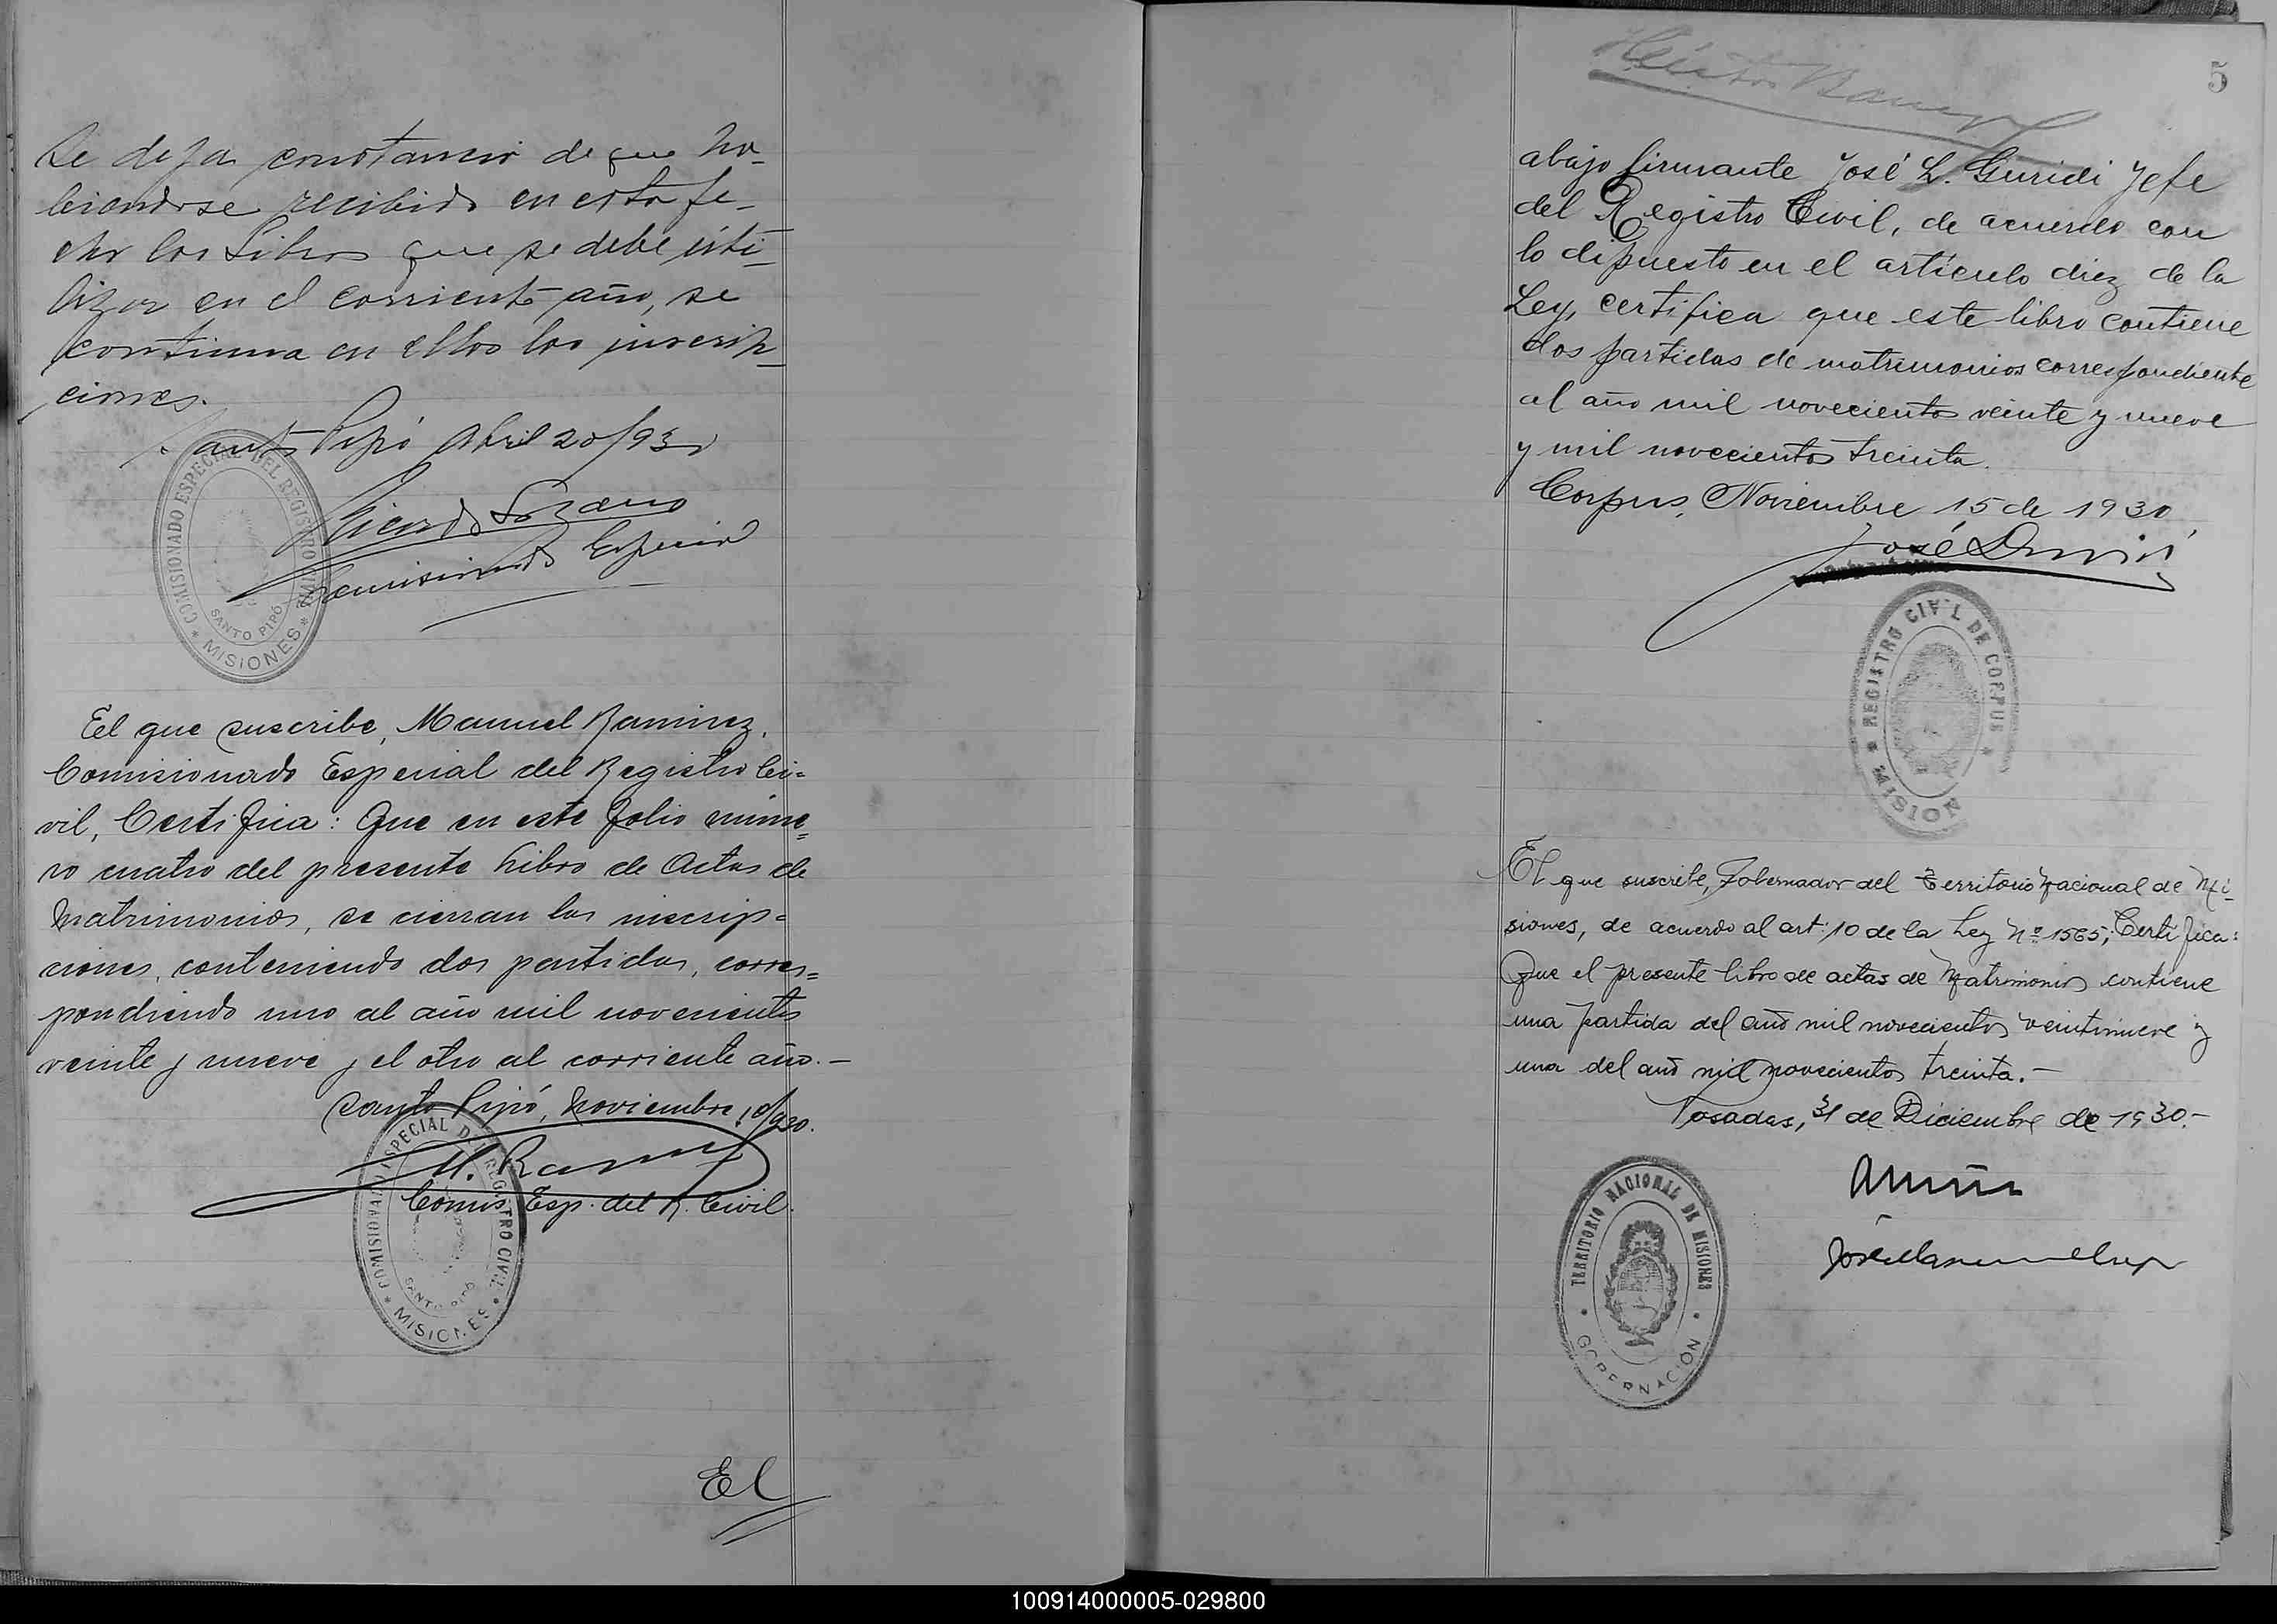 Se deja constancia de que ha-
biendose recibido en esta fe-
cha los Libros que se debe uti-
lizar en el corriente año, se
continua en ellos las inscrip-
ciones.
Santo Pipó Abril 20/930
Ricardo Lozano
Comisionado Especial
COMISIONADO ESPECIAL DEL REGISTRO CIVIL
SANTO PIPÓ
* MISIONES *
El que suscribe, Manuel Ramirez,
Comisionado Especial del Registro Ci=
vil, Certifica: Que en este folio núme=
ro cuatro del presente Libro de Actas de
Matrimonios, se cierran las inscrip=
ciones, conteniendo dos partidas, corres=
pondiendo uno al año mil novecientos
veinte y nueve y el otro al corriente año.—
Santo Pipó, Noviembre 10/930.
M. Ramirez
Comis. Esp. del R. Civil.
COMISIONADO ESPECIAL DEL REGISTRO CIVIL
SANTO PIPÓ
* MISIONES *
El
5
Héctor
abajo firmante José L. Guridi Jefe
del Registro Civil, de acuerdo con
lo dipuesto en el artículo diez de la
Ley, certifica que este libro contiene
dos partidas de matrimonios correspondiente
al año mil novecientos veinte y nueve
y mil novecientos treinta.
Corpus, Noviembre 15 de 1930
José Guridi
* REGISTRO CIVIL DE CORPUS *
MISION
El que suscribe, Gobernador del Territorio Nacional de Mi-
siones, de acuerdo al art: 10 de la Ley Nº 1565; Certifica:
Que el presente libro de actas de Matrimonios contiene
una partida del año mil novecientos veintinueve y
una del año mil novecientos treinta.—
Posadas, 31 de Diciembre de 1930.—
TERRITORIO NACIONAL DE MISIONES
GOBERNACIÓN
100914000005-029800